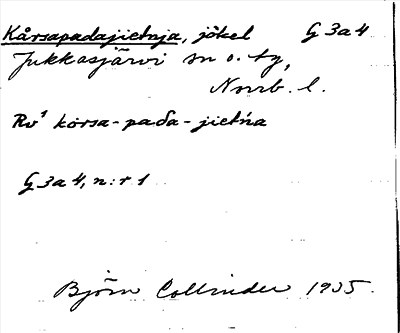 Kårsapadajietnja, jökel G 3 a 4
Jukkasjärvi sn o. tg,
Nnrb. l.
Rv¹ kor̄sa-pađa-jietńa
G 3 a 4, n:r 1
Björn Collinder 1935.